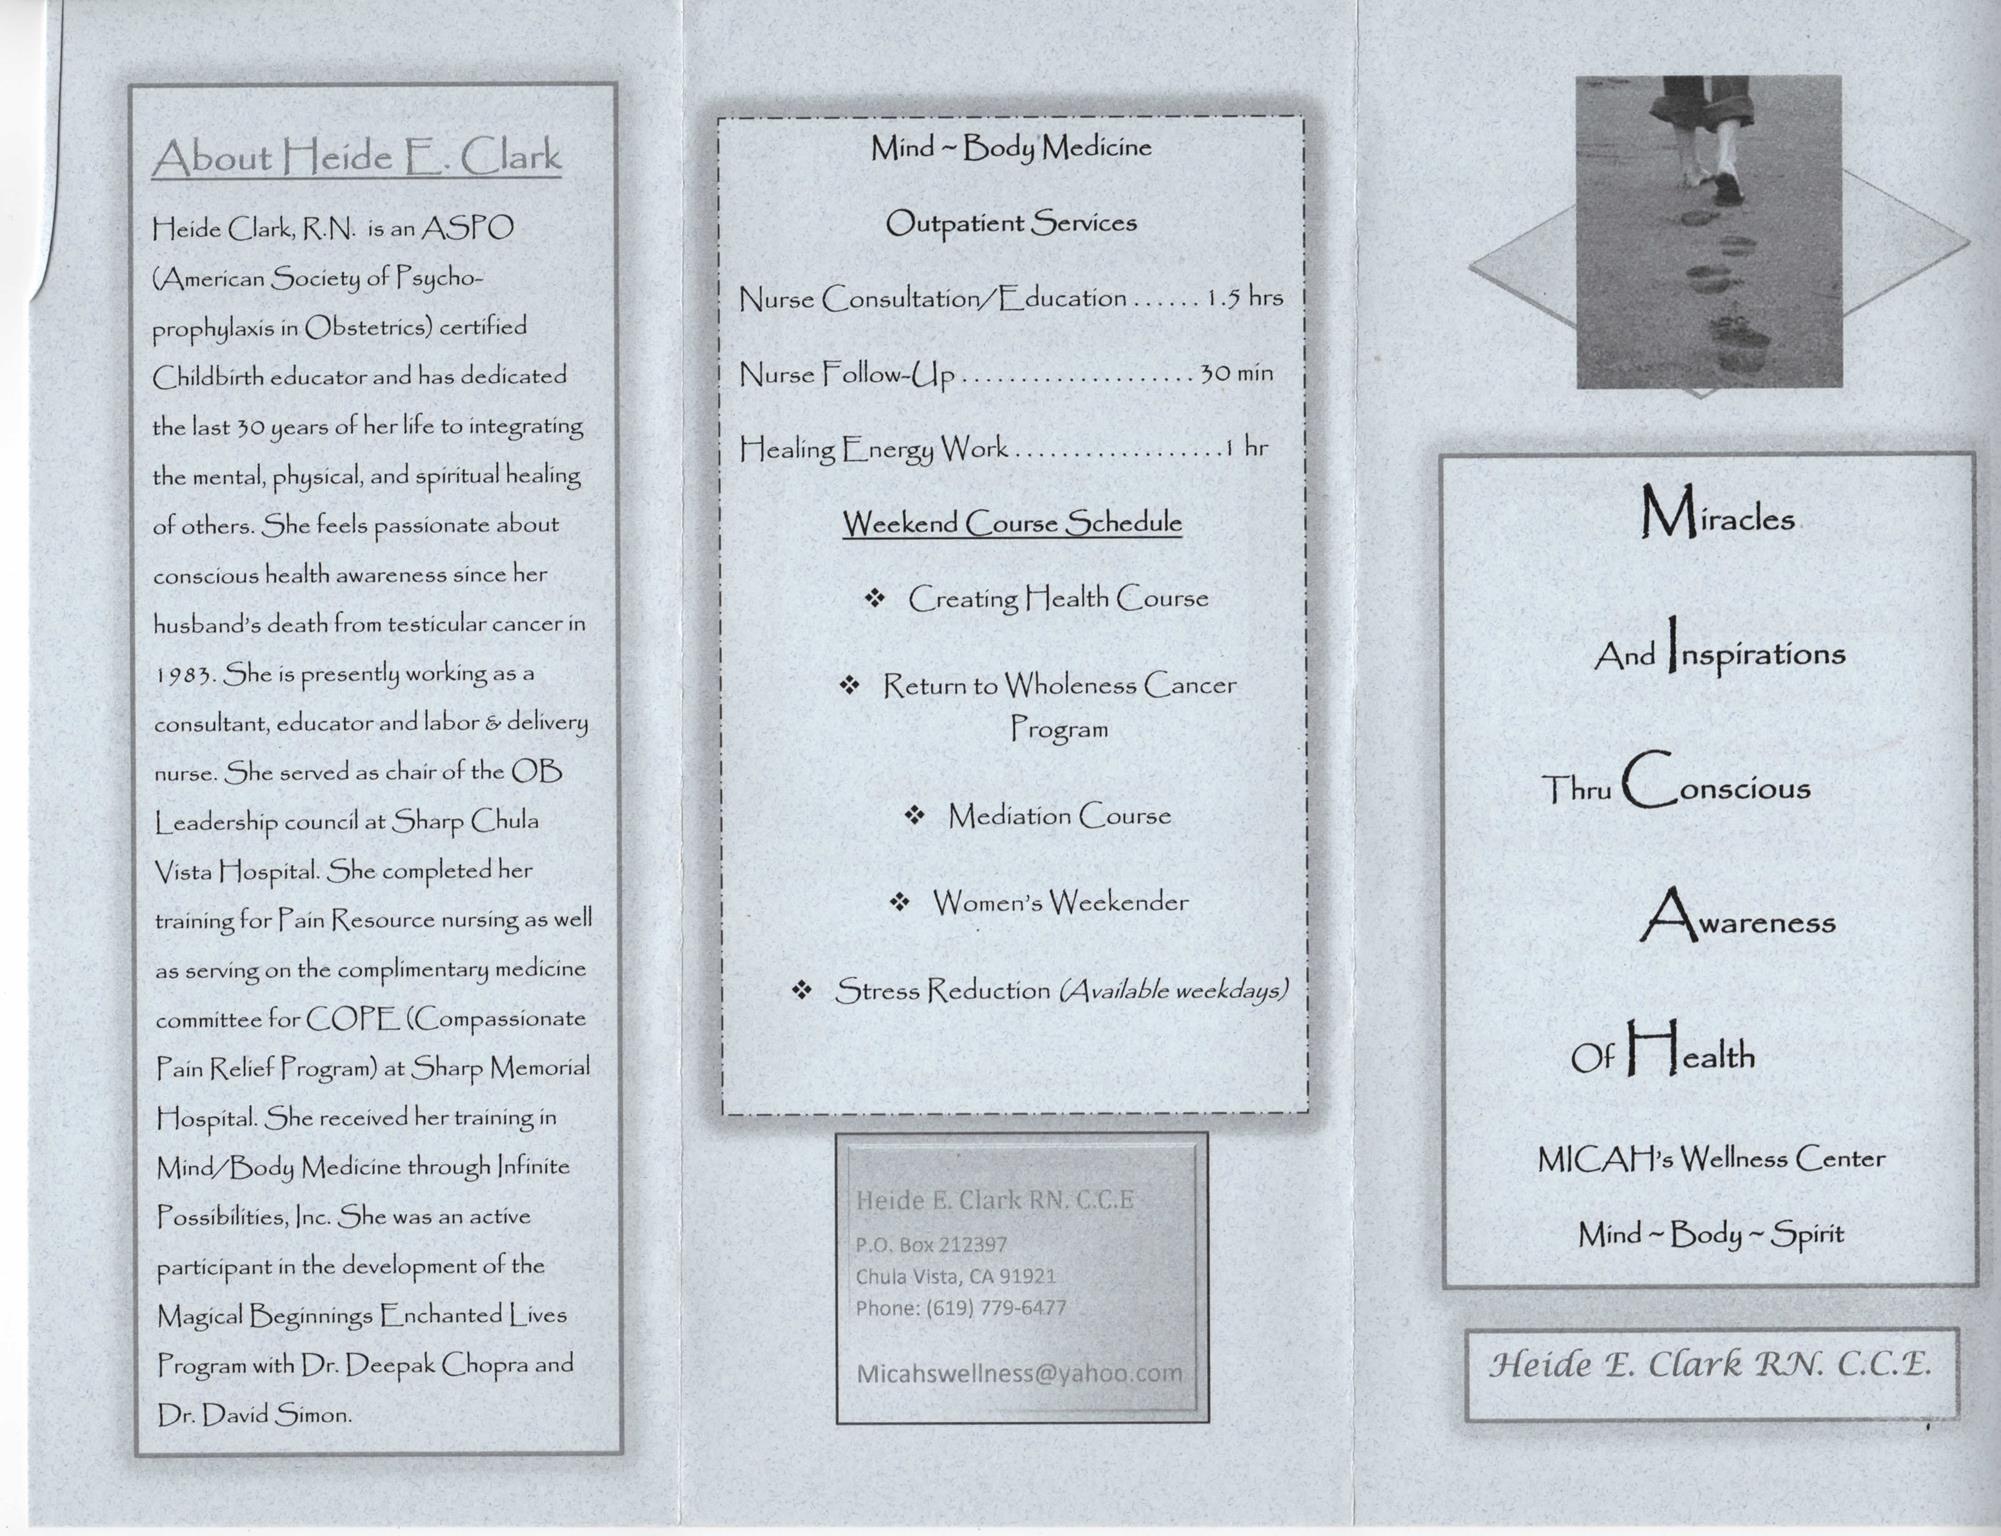 About Heide E. Clark
Heide Clark, R.N. is an ASPO
(American Society of Psycho-
prophylaxis in Obstetrics) certified
Childbirth educator and has dedicated
the last 30 years of her life to integrating
the mental, physical, and spiritual healing
of others. She feels passionate about
conscious health awareness since her
husband's death from testicular cancer in
1983. She is presently working as a
consultant, educator and labor & delivery
nurse. She served as chair of the OB
Leadership council at Sharp Chula
Vista Hospital. She completed her
training for Pain Resource nursing as well
as serving on the complimentary medicine
committee for COPE (Compassionate
Pain Relief Program) at Sharp Memorial
Hospital. She received her training in
Mind/Body Medicine through Infinite
Possibilities, Inc. She was an active
participant in the development of the
Magical Beginnings Enchanted Lives
Program with Dr. Deepak Chopra and
Dr. David Simon.
Mind ~ Body Medicine
Outpatient Services
Nurse Consultation/Education ...... 1.5 hrs
Nurse Follow-Up .................... 30 min
Healing Energy Work ..................1 hr
Weekend Course Schedule
❖ Creating Health Course
❖ Return to Wholeness Cancer
Program
❖ Mediation Course
❖ Women's Weekender
❖ Stress Reduction (Available weekdays)
Heide E. Clark RN. C.C.E
P.O. Box 212397
Chula Vista, CA 91921
Phone: (619) 779-6477
Micahswellness@yahoo.com
Miracles
And Inspirations
Thru Conscious
Awareness
Of Health
MICAH's Wellness Center
Mind ~ Body ~ Spirit
Heide E. Clark RN. C.C.E.